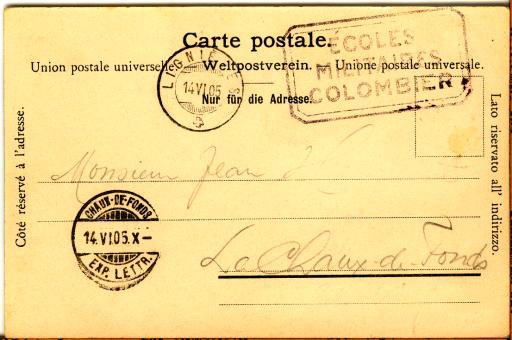 Carte postale.
Union postale universelle. Weltpostverein. Unione postale universale.
Nur für die Adresse.
ÉCOLES
MILITAIRES
COLOMBIER
LIGNIÈRES
14 VI 05
Côté réservé à l'adresse.
Lato riservato all' indirizzo.
Monsieur Jean
CHAUX-DE-FONDS
14.VI 05.X-
EXP. LETTR.
La Chaux-de-Fonds